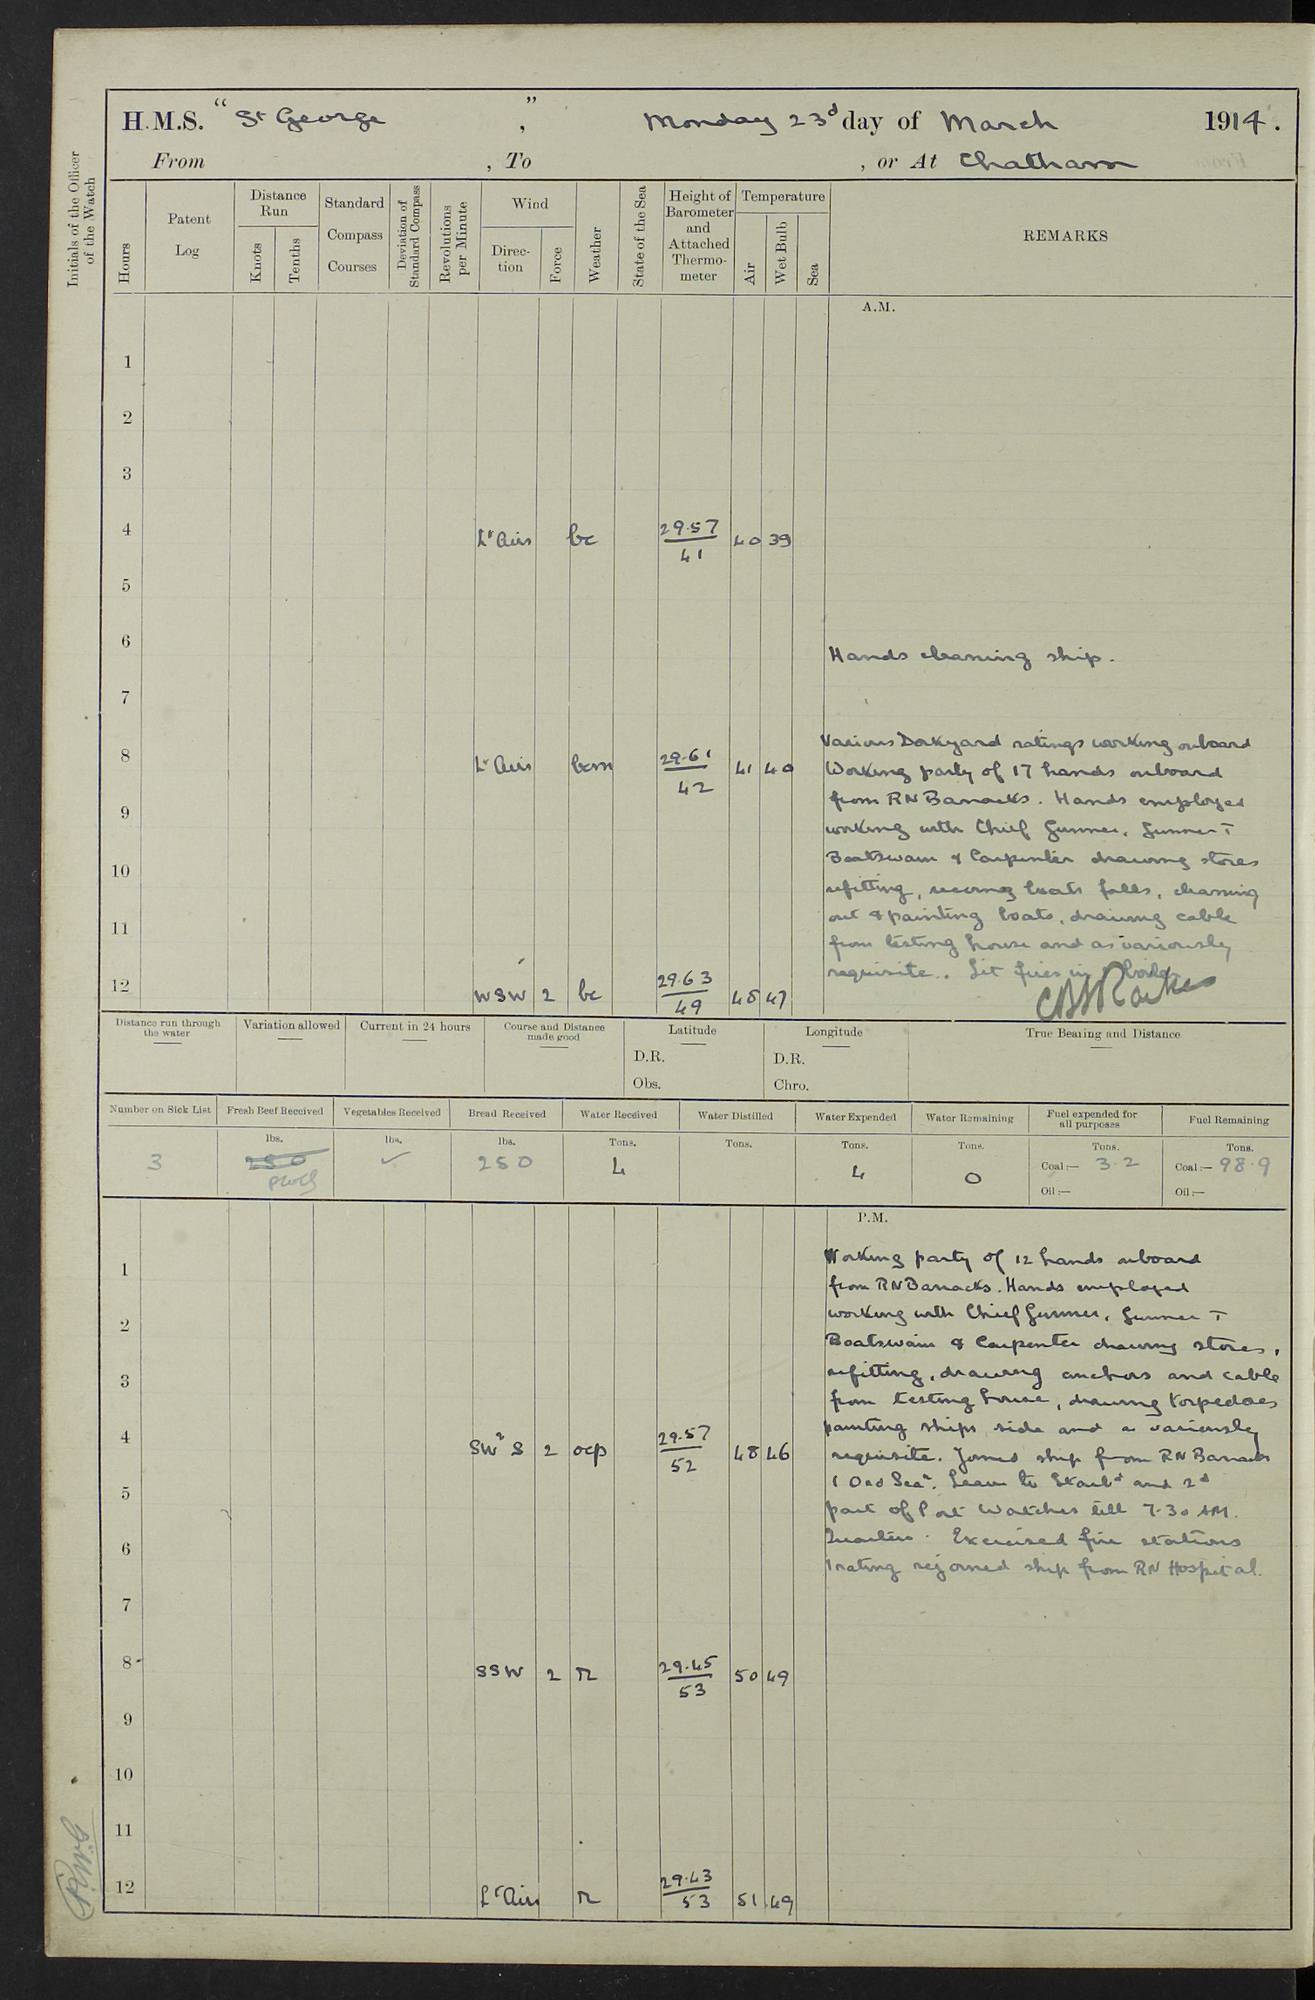 H.M.S. "St George", Monday 23d day of March 1914.
From , To , or At Chatham
Initials of the Officer of the Watch
Hours
Patent Log
Distance Run
Knots
Tenths
Standard Compass Courses
Deviation of Standard Compass
Revolutions per Minute
Wind
Direc-tion
Force
Weather
State of the Sea
Height of Barometer and Attached Thermo-meter
Temperature
Air
Wet Bulb
Sea
REMARKS
A.M.
1
2
3
4 Lt Airs bc 29.57/41 40 39
5
6 Hands cleaning ship.
7
Various Dockyard ratings working onboard
8 Lt Airs bcm 29.61/42 41 40
Working party of 17 hands onboard
from RN Barracks. Hands employed
9
working with Chief Gunner, Gunner T
Boatswain & Carpenter drawing stores
10
refitting, reeving boats falls, cleaning
out & painting boats, drawing cable
11
from testing house and as variously
requisite. Lit fires in boiler
12 WSW 2 bc 29.63/49 48 47
Distance run through the water
Variation allowed
Current in 24 hours
Course and Distance made good
Latitude
D.R.
Obs.
Longitude
D.R.
Chro.
True Bearing and Distance
Number on Sick List
Fresh Beef Received
Vegetables Received
Bread Received
Water Received
Water Distilled
Water Expended
Water Remaining
Fuel expended for all purposes
Fuel Remaining
lbs. lbs. lbs. Tons. Tons. Tons. Tons. Tons. Tons.
3 250 ✓ 250 4 4 0 Coal:— 3.2 Coal:— 98.9
Oil:— Oil:—
P.M.
Working party of 12 hands onboard
1
from RN Barracks. Hands employed
working with Chief Gunner, Gunner T
2
Boatswain & Carpenter drawing stores,
refitting, drawing anchors and cable
3
from testing house, drawing torpedoes
painting ships side and as variously
4 SW²S 2 ocp 29.57/52 48 46
requisite. Joined ship from RN Barracks
1 Ord Sean. Leave to Starbd and 2d
5
part of Port Watches till 7-30 AM.
Quarters. Exercised fire stations
6
1 rating rejoined ship from RN Hospital.
7
8 SSW 2 r 29.45/53 50 49
9
10
11
12 Lt Airs r 29.43/53 51 49